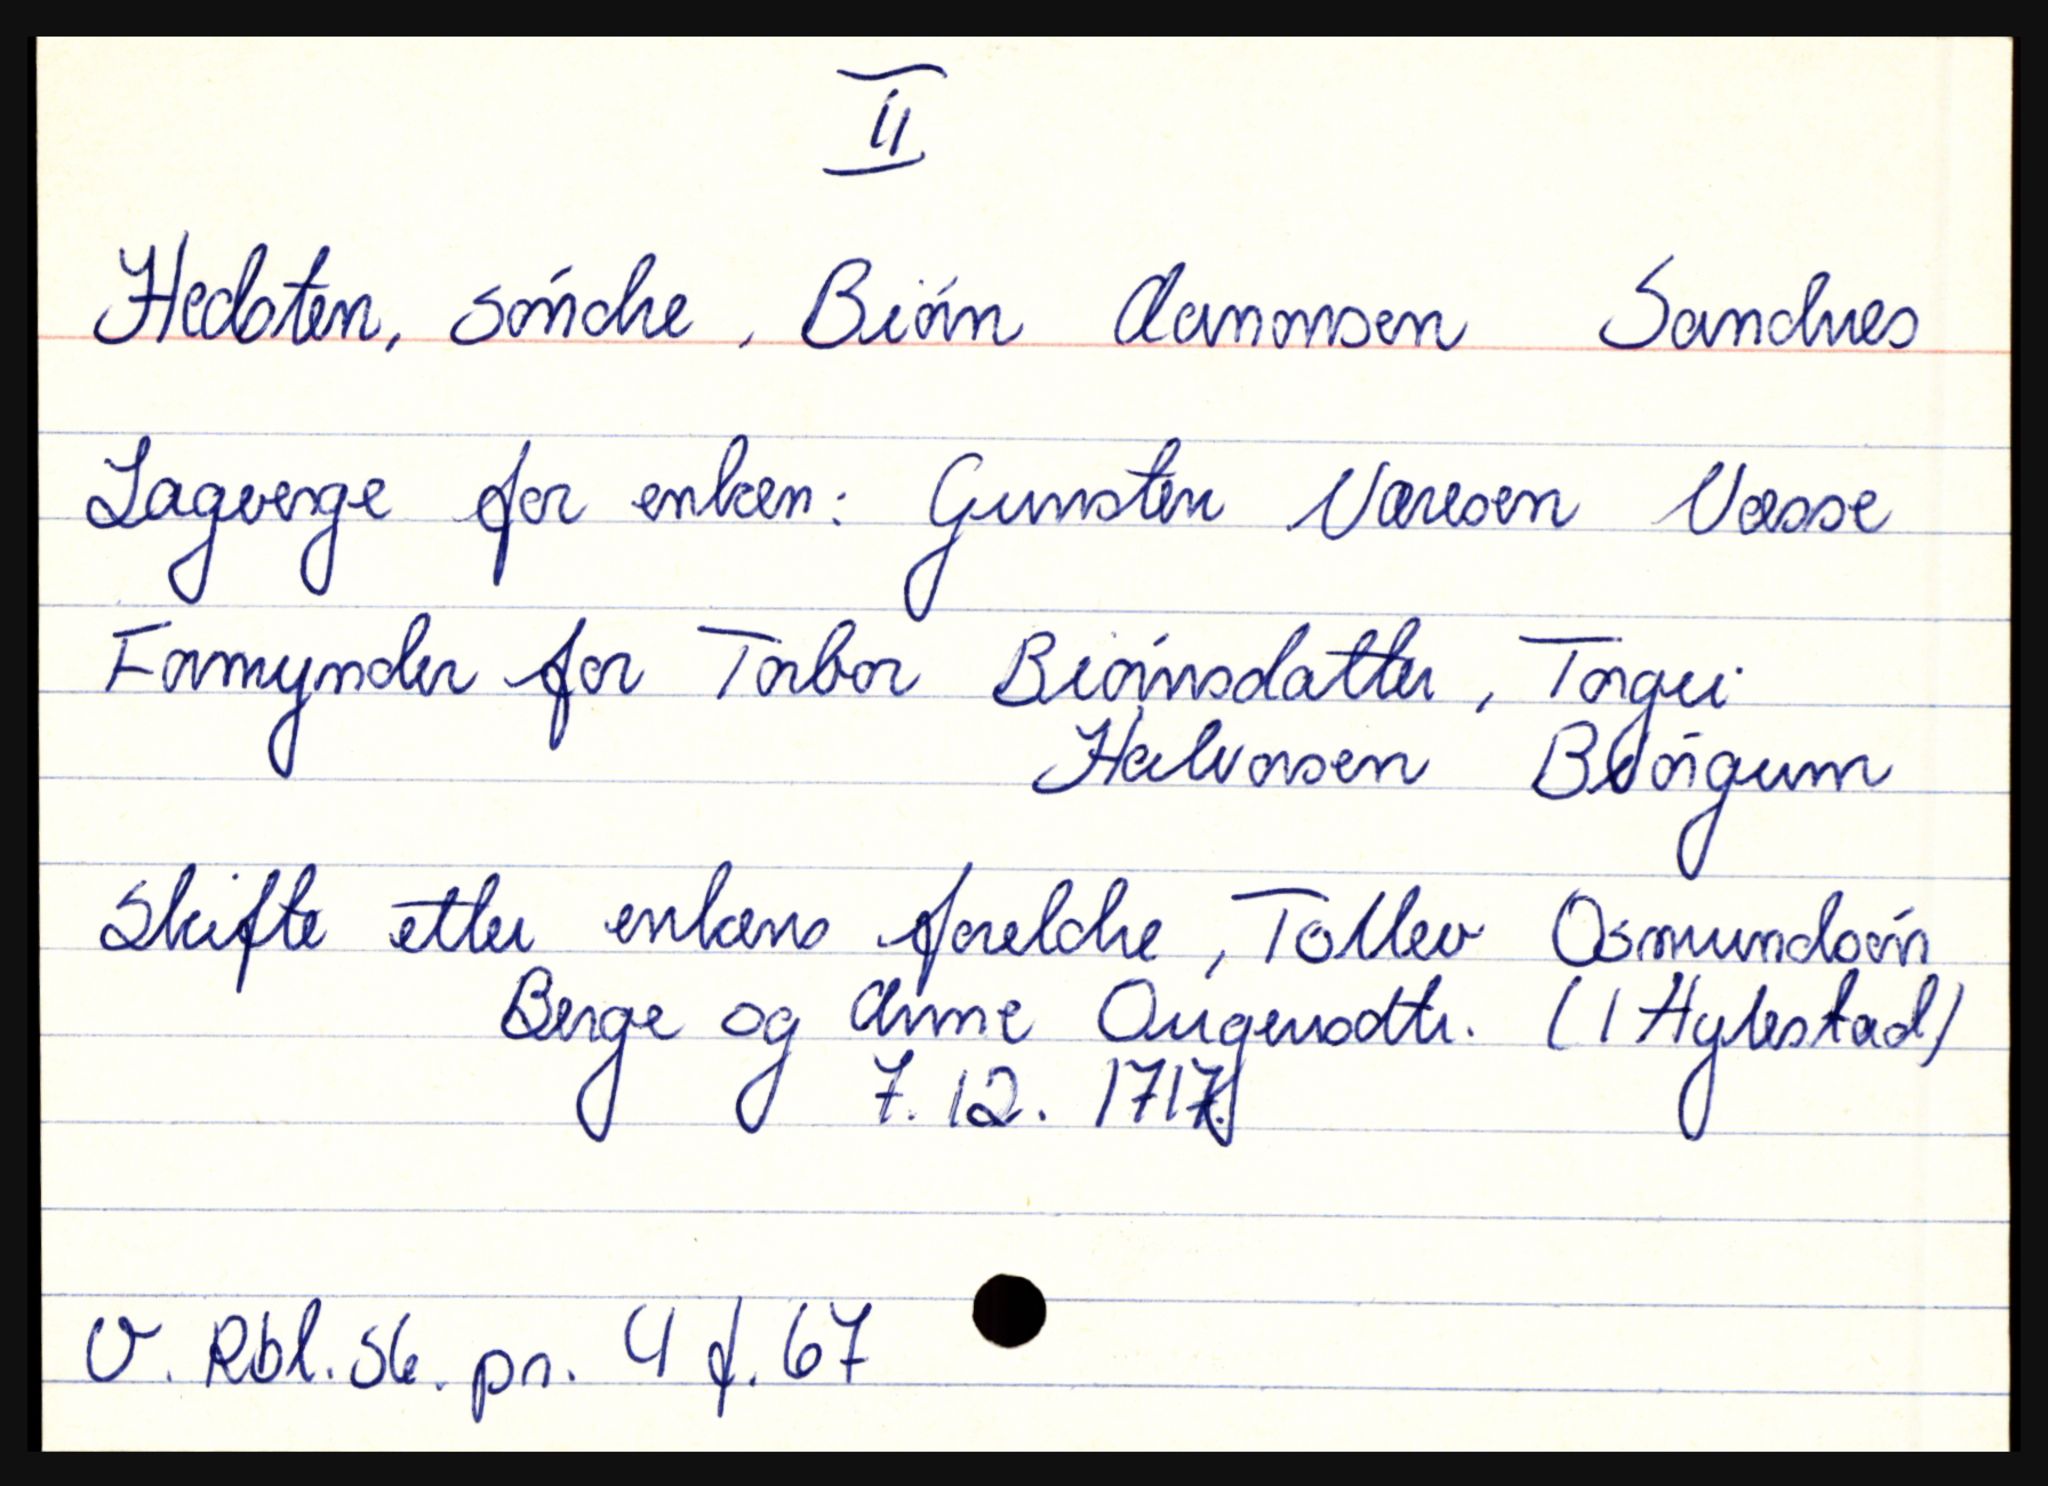 II
Hedsten, søndre, Biørn Aanonsen Sandnes
Lagverge for enken: Gunsten Næresen Næsse
Formynder for Torbor Biørnsdatter, Torgei
Halvorsen Biørgum
Skifte etter enkens foreldre, Tollev Osmundsøn
Berge og Anne Ougensdtr. (i Hylestad)
7. 12. 1717
V. Rbl. Sk. pr. 4 f. 67